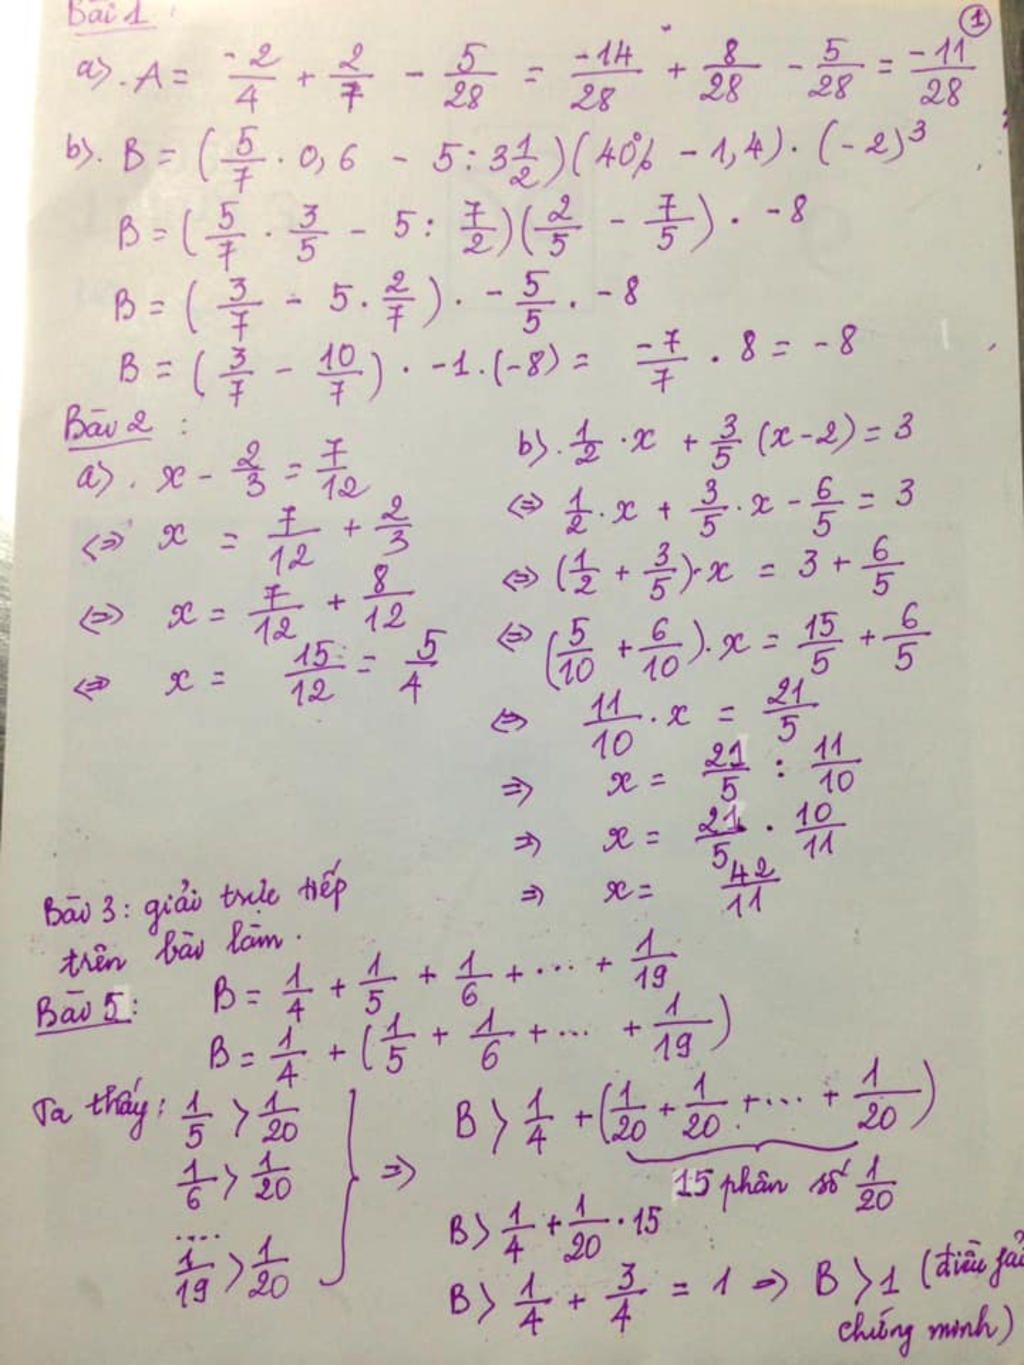 Bài 1:
①
a). A = -2/4 + 2/7 - 5/28 = -14/28 + 8/28 - 5/28 = -11/28
b). B = (5/7 . 0,6 - 5 : 3 1/2)(40% - 1,4) . (-2)³
B = (5/7 . 3/5 - 5 : 7/2)(2/5 - 7/5) . -8
B = (3/7 - 5 . 2/7) . -5/5 . -8
B = (3/7 - 10/7) . -1 . (-8) = -7/7 . 8 = -8
Bài 2:
a). x - 2/3 = 7/12
⇔ x = 7/12 + 2/3
⇔ x = 7/12 + 8/12
⇔ x = 15/12 = 5/4
b). 1/2 . x + 3/5 (x - 2) = 3
⇔ 1/2 . x + 3/5 . x - 6/5 = 3
⇔ (1/2 + 3/5) . x = 3 + 6/5
⇔ (5/10 + 6/10) . x = 15/5 + 6/5
⇔ 11/10 . x = 21/5
⇒ x = 21/5 : 11/10
⇒ x = 21/5 . 10/11
⇒ x = 42/11
Bài 3: giải trực tiếp
trên bài làm.
Bài 5: B = 1/4 + 1/5 + 1/6 + ... + 1/19
B = 1/4 + (1/5 + 1/6 + ... + 1/19)
Ta thấy: 1/5 > 1/20
1/6 > 1/20
....
1/19 > 1/20
⇒ B > 1/4 + (1/20 + 1/20 + ... + 1/20)
15 phân số 1/20
B > 1/4 + 1/20 . 15
B > 1/4 + 3/4 = 1 ⇒ B > 1 (điều
chứng minh)